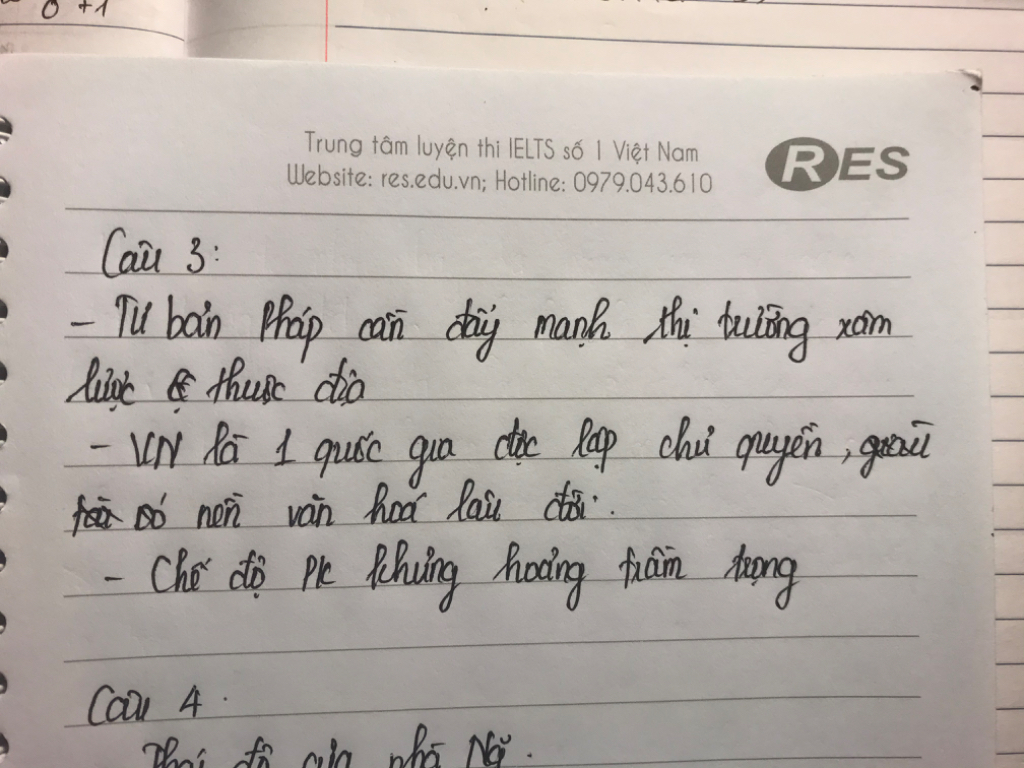 0 +1
Trung tâm luyện thi IELTS số 1 Việt Nam
Website: res.edu.vn; Hotline: 0979.043.610
RES
Câu 3:
- Tư bản Pháp cần đẩy mạnh thị trường xâm
lược & thuộc địa
- VN là 1 quốc gia độc lập chủ quyền,
có nền văn hoá lâu đời.
- Chế độ PK khủng hoảng trầm trọng
Câu 4.
Thái độ của nhà Ng̃.